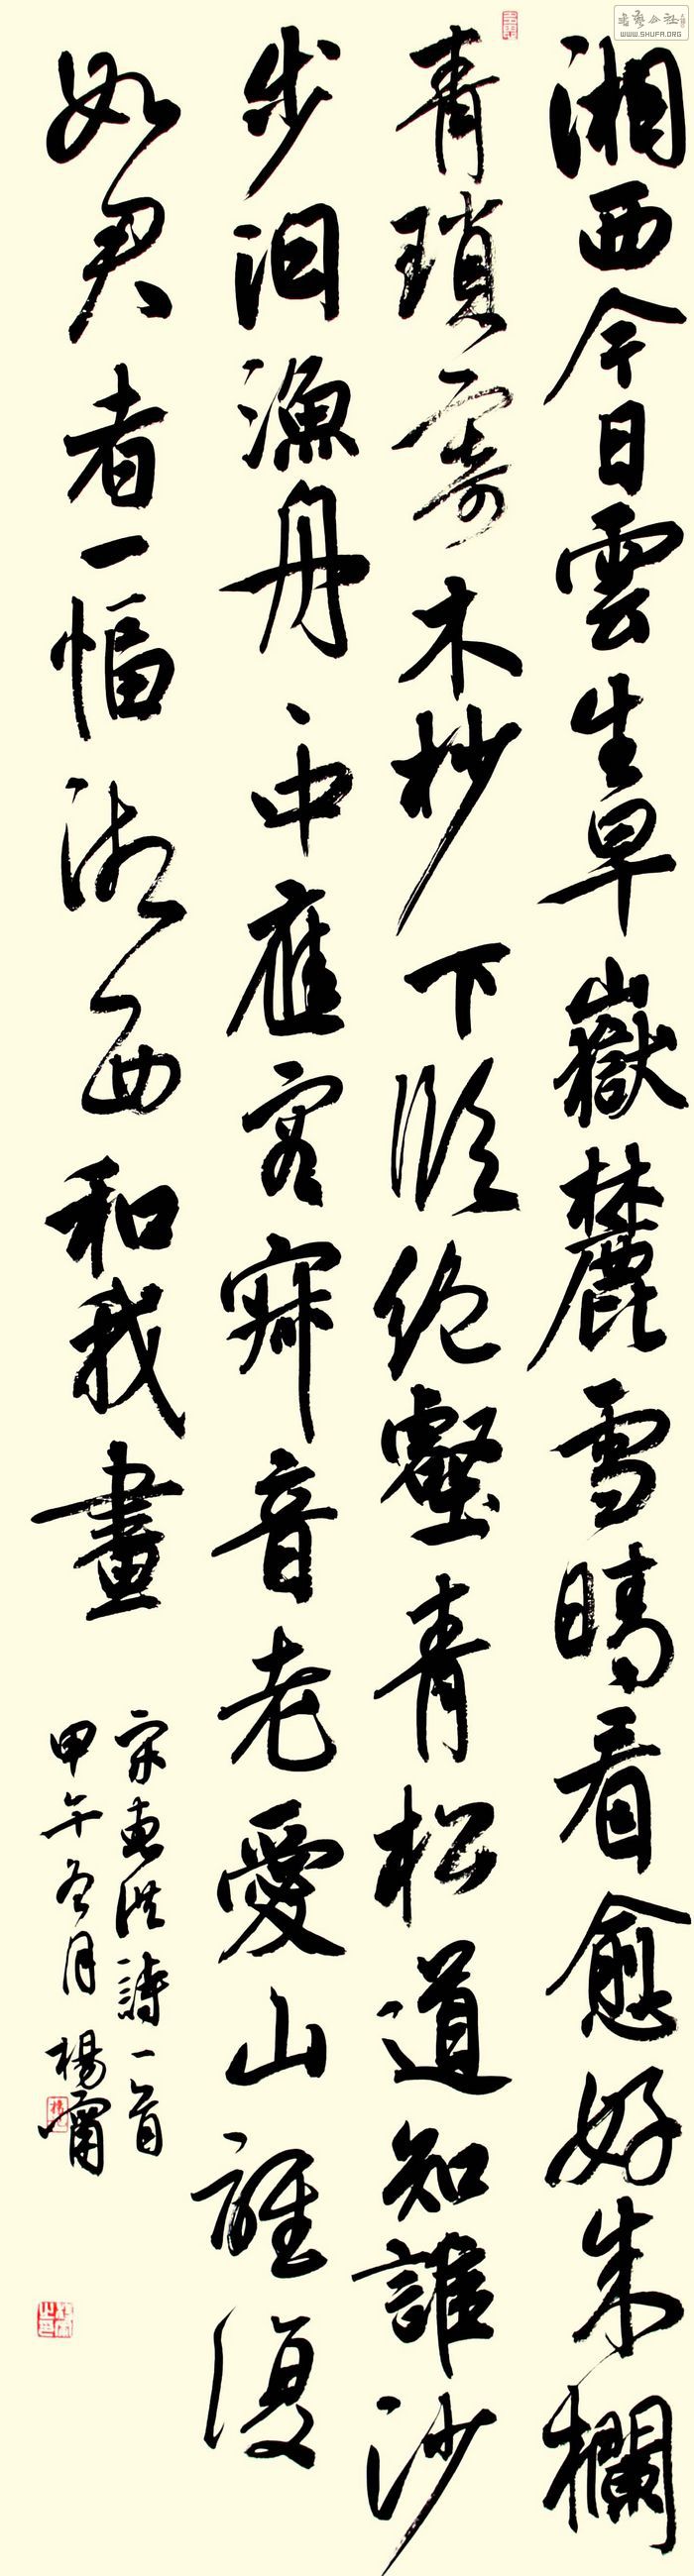 湘西今日雲生早嶽麓雪晴看愈好朱欄
青瑣寄木杪下臨絶壑青松道知誰沙
步泊漁舟中應客寐音老愛山誰復
如君者一幅湘西和我畫
宋惠洪詩一首
甲午冬月楊甯
書藝公社
WWW.SHUFA.ORG